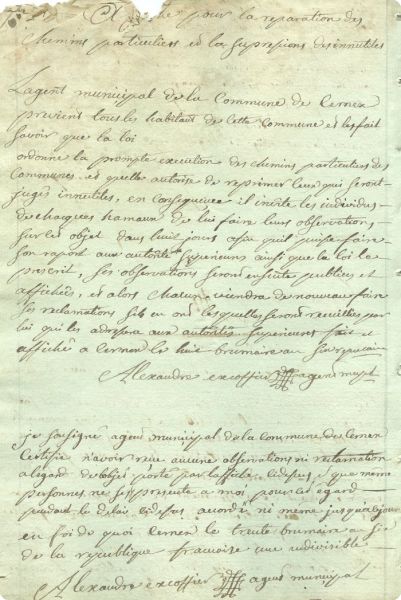 pour la reparation des
chemins particuliers et la supressions des innutiles
L'agent municipal de la Commune de Cernex
previens tous les habitant de cette commune et les fait
savoir que la loi
ordonne la prompte execution des chemins particuliers des
Communes et quelle autorise de reprimer ceux qui seront
jugés innutiles, en consequence il invite les individus
de chaques hamaux de lui faire leurs observations
sur cet objet dans huit jours afin quil puisse faire
son raport aux autorités superieures ainsi que la loi le
prescrit, ses observations seront ensuite publiees et
affichées, et alors chacun viendra de nouveau faire
ses reclamations sils en ont lesquelles seront recueillies par
lui qui les adressera aux autorités superieures fait et
affiché a Cernex le huit brumaire an six republicain
Alexandre excoffier agent mupl
je soussigné agent municipal de la commune de Cernex
Certifie n'avoir reçu aucune observations ni reclamation
a legard de lobjet porté par laffiche cidessus et que meme
personnes ne sest presenté a moi pour cet égard
pendant le delai cidessus acordé ni meme jusqua ce jour
en foi de quoi Cernex le trente brumaire an six
de la republique francaise une indivisible
Alexandre excoffier agent municipal